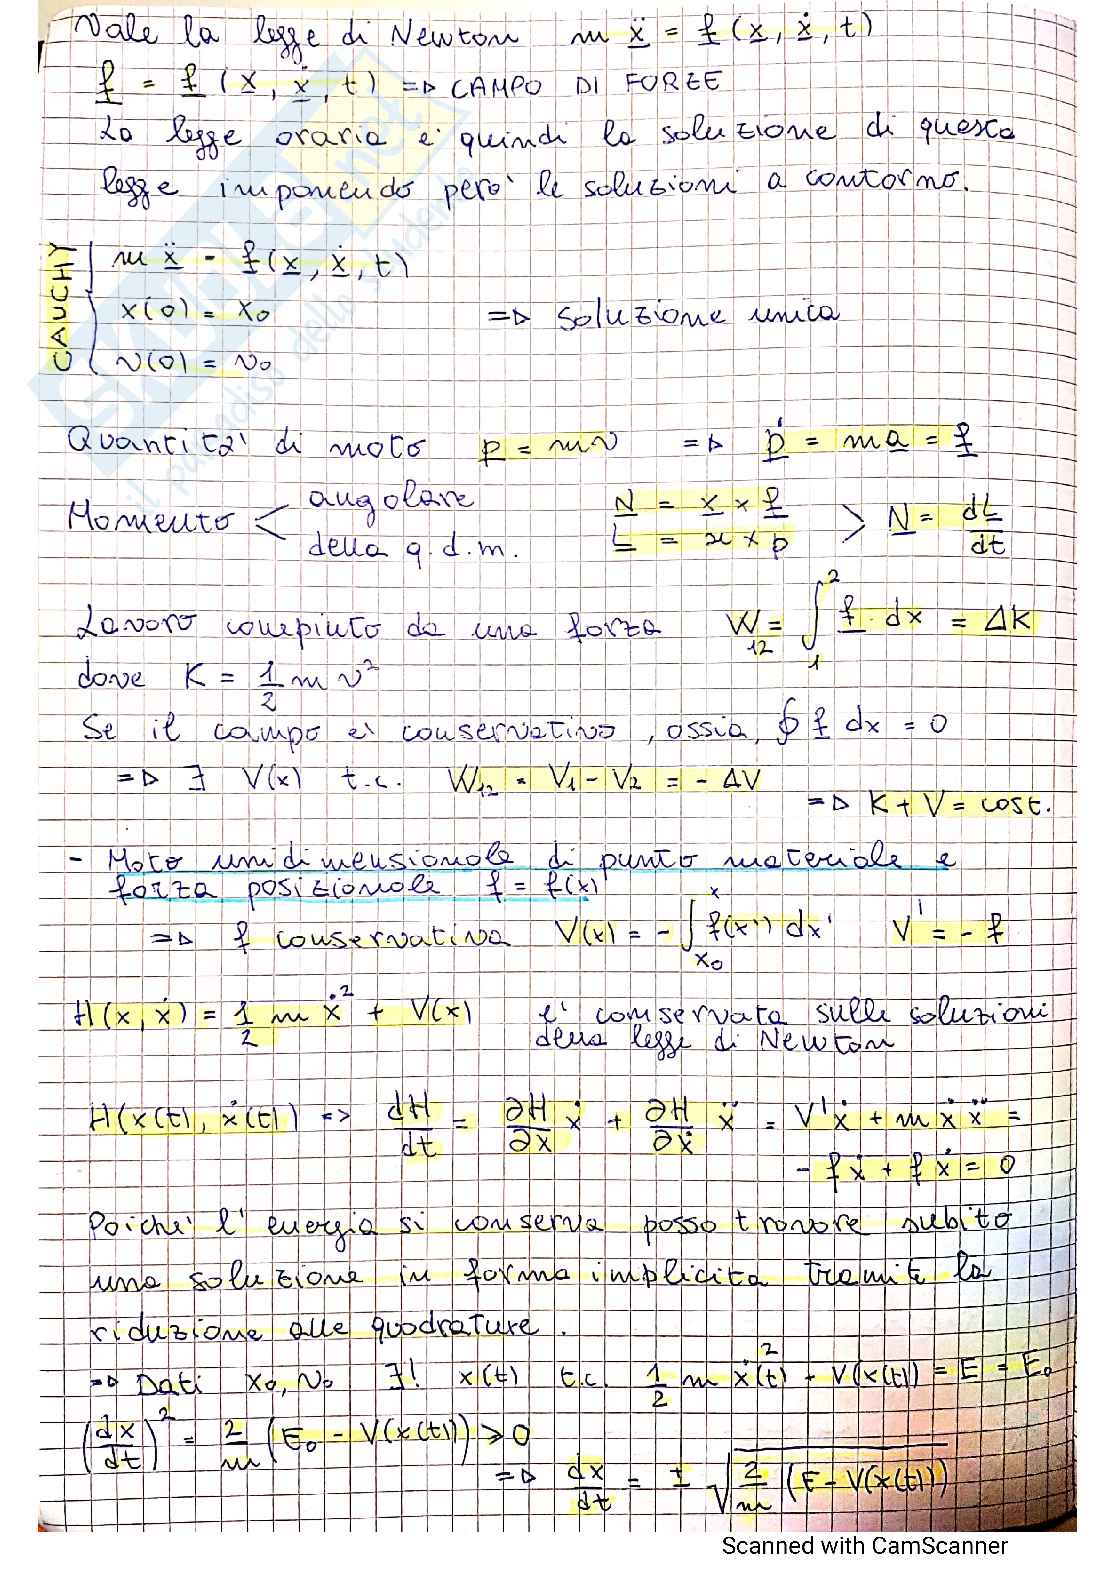 Vale la legge di Newton m ẍ = f (x, ẋ, t)
f = f (x, ẋ, t) => CAMPO DI FORZE
La legge oraria e' quindi la soluzione di questa
legge imponendo pero' le soluzioni a contorno.
CAUCHY
m ẍ = f(x, ẋ, t)
x(0) = x₀ => soluzione unica
v(0) = v₀
Quantita' di moto p = mv => ṗ = ma = f
Momento < angolare N = x × f > N = dL/dt
della q.d.m. L = x × p
Lavoro compiuto da una forza W₁₂ = ∫₁² f · dx = ΔK
dove K = 1/2 m v²
Se il campo e' conservativo, ossia, ∮ f dx = 0
=> ∃ V(x) t.c. W₁₂ = V₁ - V₂ = - ΔV
=> K + V = cost.
- Moto unidimensionale di punto materiale e
forza posizionale f = f(x)
=> f conservativa V(x) = - ∫ₓ₀ˣ f(x') dx' V' = - f
H(x, ẋ) = 1/2 m ẋ² + V(x) e' conservata sulle soluzioni
della legge di Newton
H(x(t), ẋ(t)) => dH/dt = ∂H/∂x ẋ + ∂H/∂ẋ ẍ = V'ẋ + m ẋ ẍ =
- f ẋ + f ẋ = 0
Poiche' l'energia si conserva posso trovare subito
una soluzione in forma implicita tramite la
riduzione alle quadrature.
=> Dati x₀, v₀ ∃! x(t) t.c. 1/2 m ẋ²(t) + V(x(t)) = E = E₀
(dx/dt)² = 2/m (E₀ - V(x(t))) ≥ 0
=> dx/dt = ± √(2/m (E - V(x(t))))
Scanned with CamScanner
SKUOLA.net
il paradiso dello studente